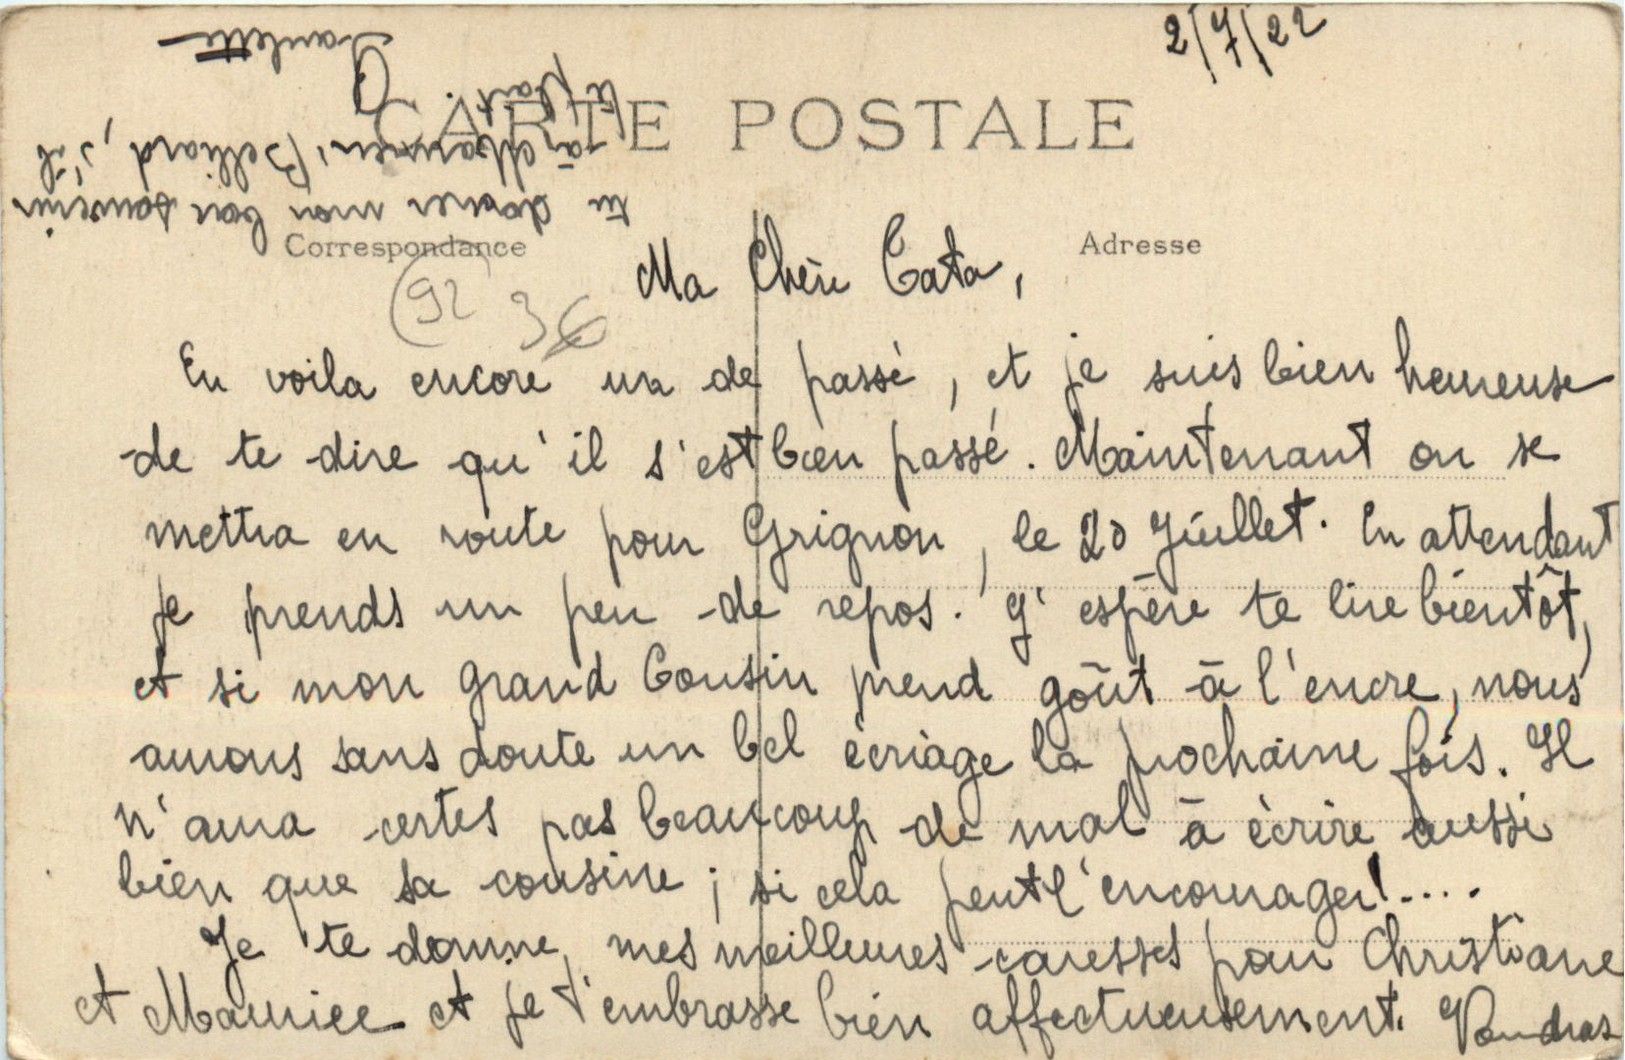 2/7/22
CARTE POSTALE
Correspondance
Adresse
(92
3€
Ma Chère Cata,
En voila encore un de passé, et je suis bien heureuse
de te dire qu'il s'est bien passé. Maintenant on se
mettra en route pour Grignon, le 20 Juillet. En attendant
je prends un peu de repos. J'espère te lire bientôt,
et si mon grand Cousin prend goût à l'encre, nous
aurons sans doute un bel écriage la prochaine fois. Il
n'aura certes pas beaucoup de mal à écrire aussi
bien que sa cousine ; si cela peut l'encourager!....
Je te donne mes meilleures caresses pour Christiane
et Maurice et je t'embrasse bien affectueusement. Voudras
tu donner mon bon souvenir
à Maman Belliard, s'il
te plait.
Paulette